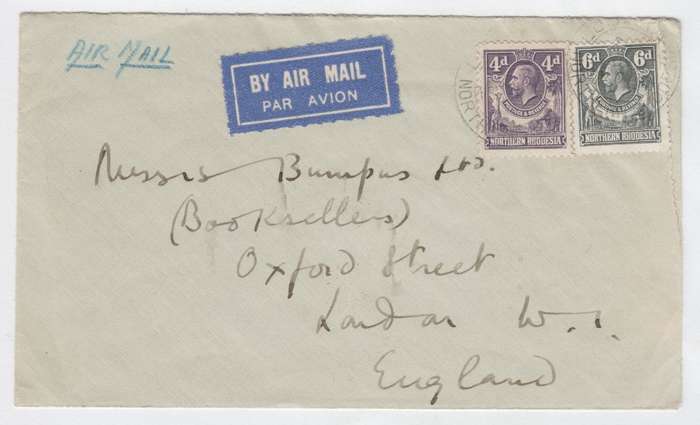 AIR MAIL
BY AIR MAIL
PAR AVION
4d 4d
POSTAGE & REVENUE
NORTHERN RHODESIA
6d 6d
POSTAGE & REVENUE
NORTHERN RHODESIA
NORT
Messrs Bumpus Ltd.
(Booksellers)
Oxford Street
London W.1.
England